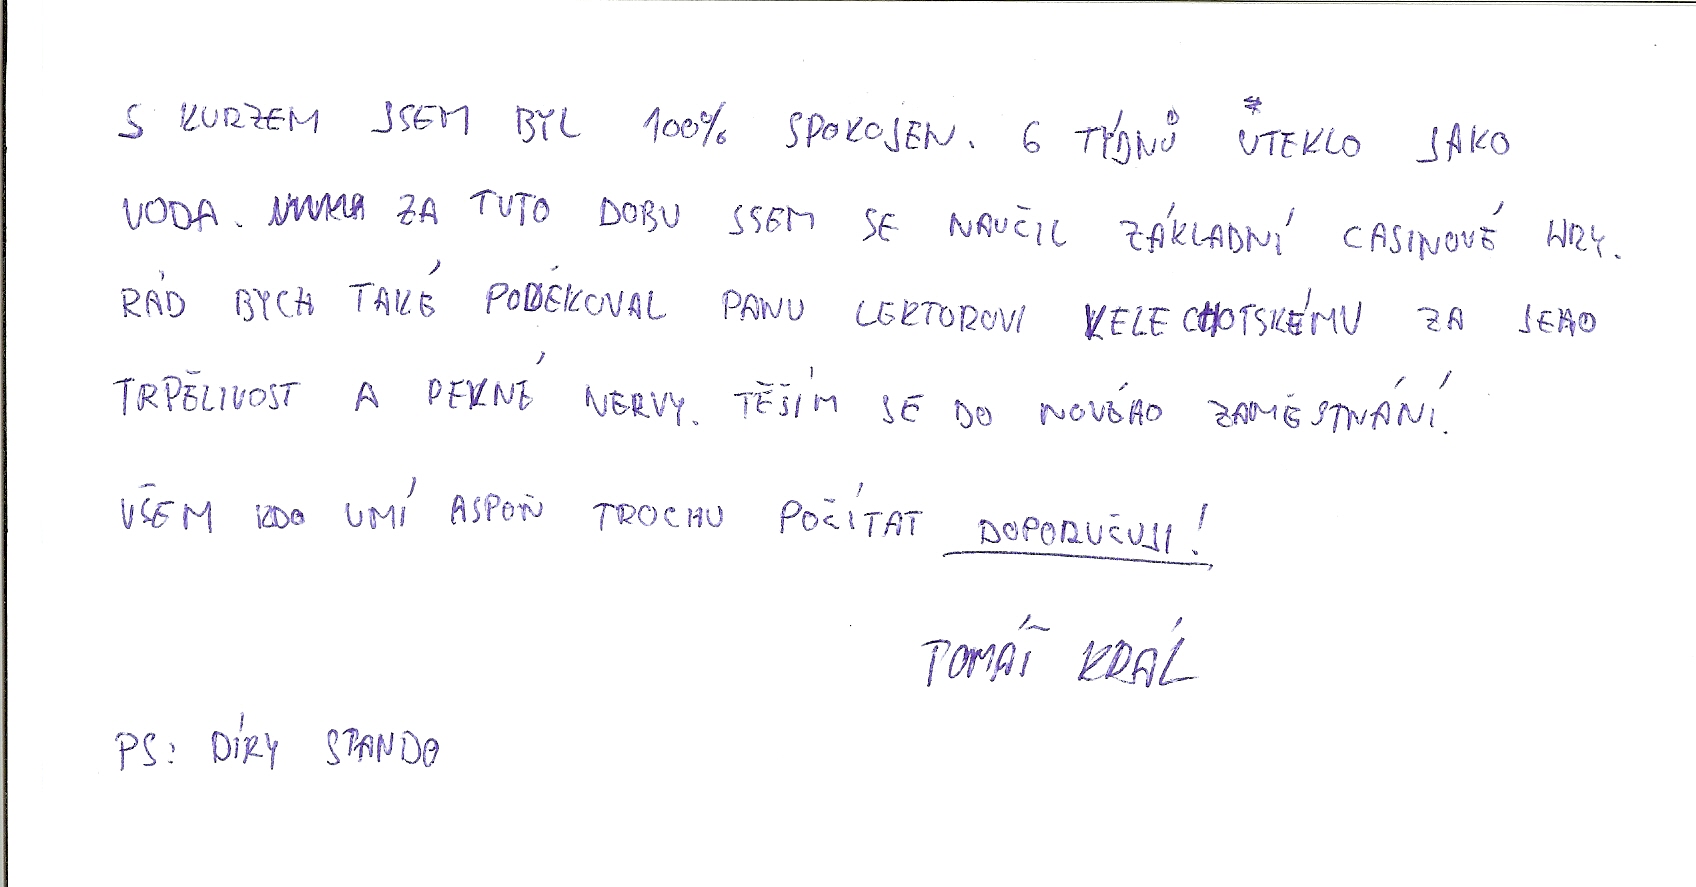 S KURZEM JSEM BYL 100% SPOKOJEN. 6 TÝDNŮ UTEKLO JAKO
VODA. ZA TUTO DOBU JSEM SE NAUČIL ZÁKLADNÍ CASINOVÉ HRY.
RÁD BYCH TAKÉ PODĚKOVAL PANU LEKTOROVI KELECHOTSKÉMU ZA JEHO
TRPĚLIVOST A PEVNÉ NERVY. TĚŠÍM SE DO NOVÉHO ZAMĚSTNÁNÍ.
VŠEM KDO UMÍ ASPOŇ TROCHU POČÍTAT DOPORUČUJI!
TOMÁŠ KRÁL
PS: DÍRY STANDO